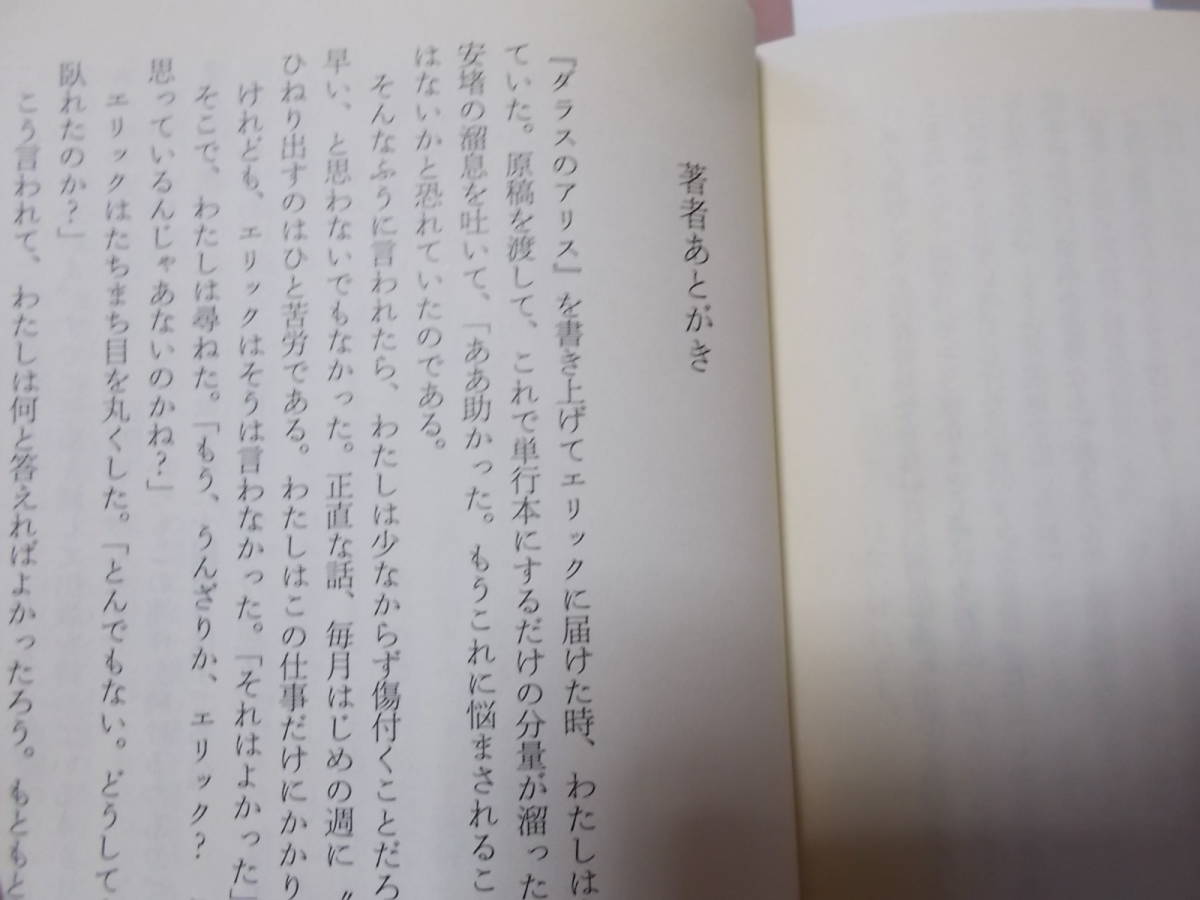 著者あとがき
『グラスのアリス』を書き上げてエリックに届けた時、わたしは
ていた。原稿を渡して、これで単行本にするだけの分量が溜った
安堵の溜息を吐いて、「ああ助かった。もうこれに悩まされるこ
はないかと恐れていたのである。
そんなふうに言われたら、わたしは少なからず傷付くことだろ
早い、と思わないでもなかった。正直な話、毎月はじめの週に〝
ひねり出すのはひと苦労である。わたしはこの仕事だけにかかり
けれども、エリックはそうは言わなかった。「それはよかった」
そこで、わたしは尋ねた。「もう、うんざりか、エリック?
思っているんじゃあないのかね?」
エリックはたちまち目を丸くした。「とんでもない。どうして
臥れたのか?」
こう言われて、わたしは何と答えればよかったろう。もともと